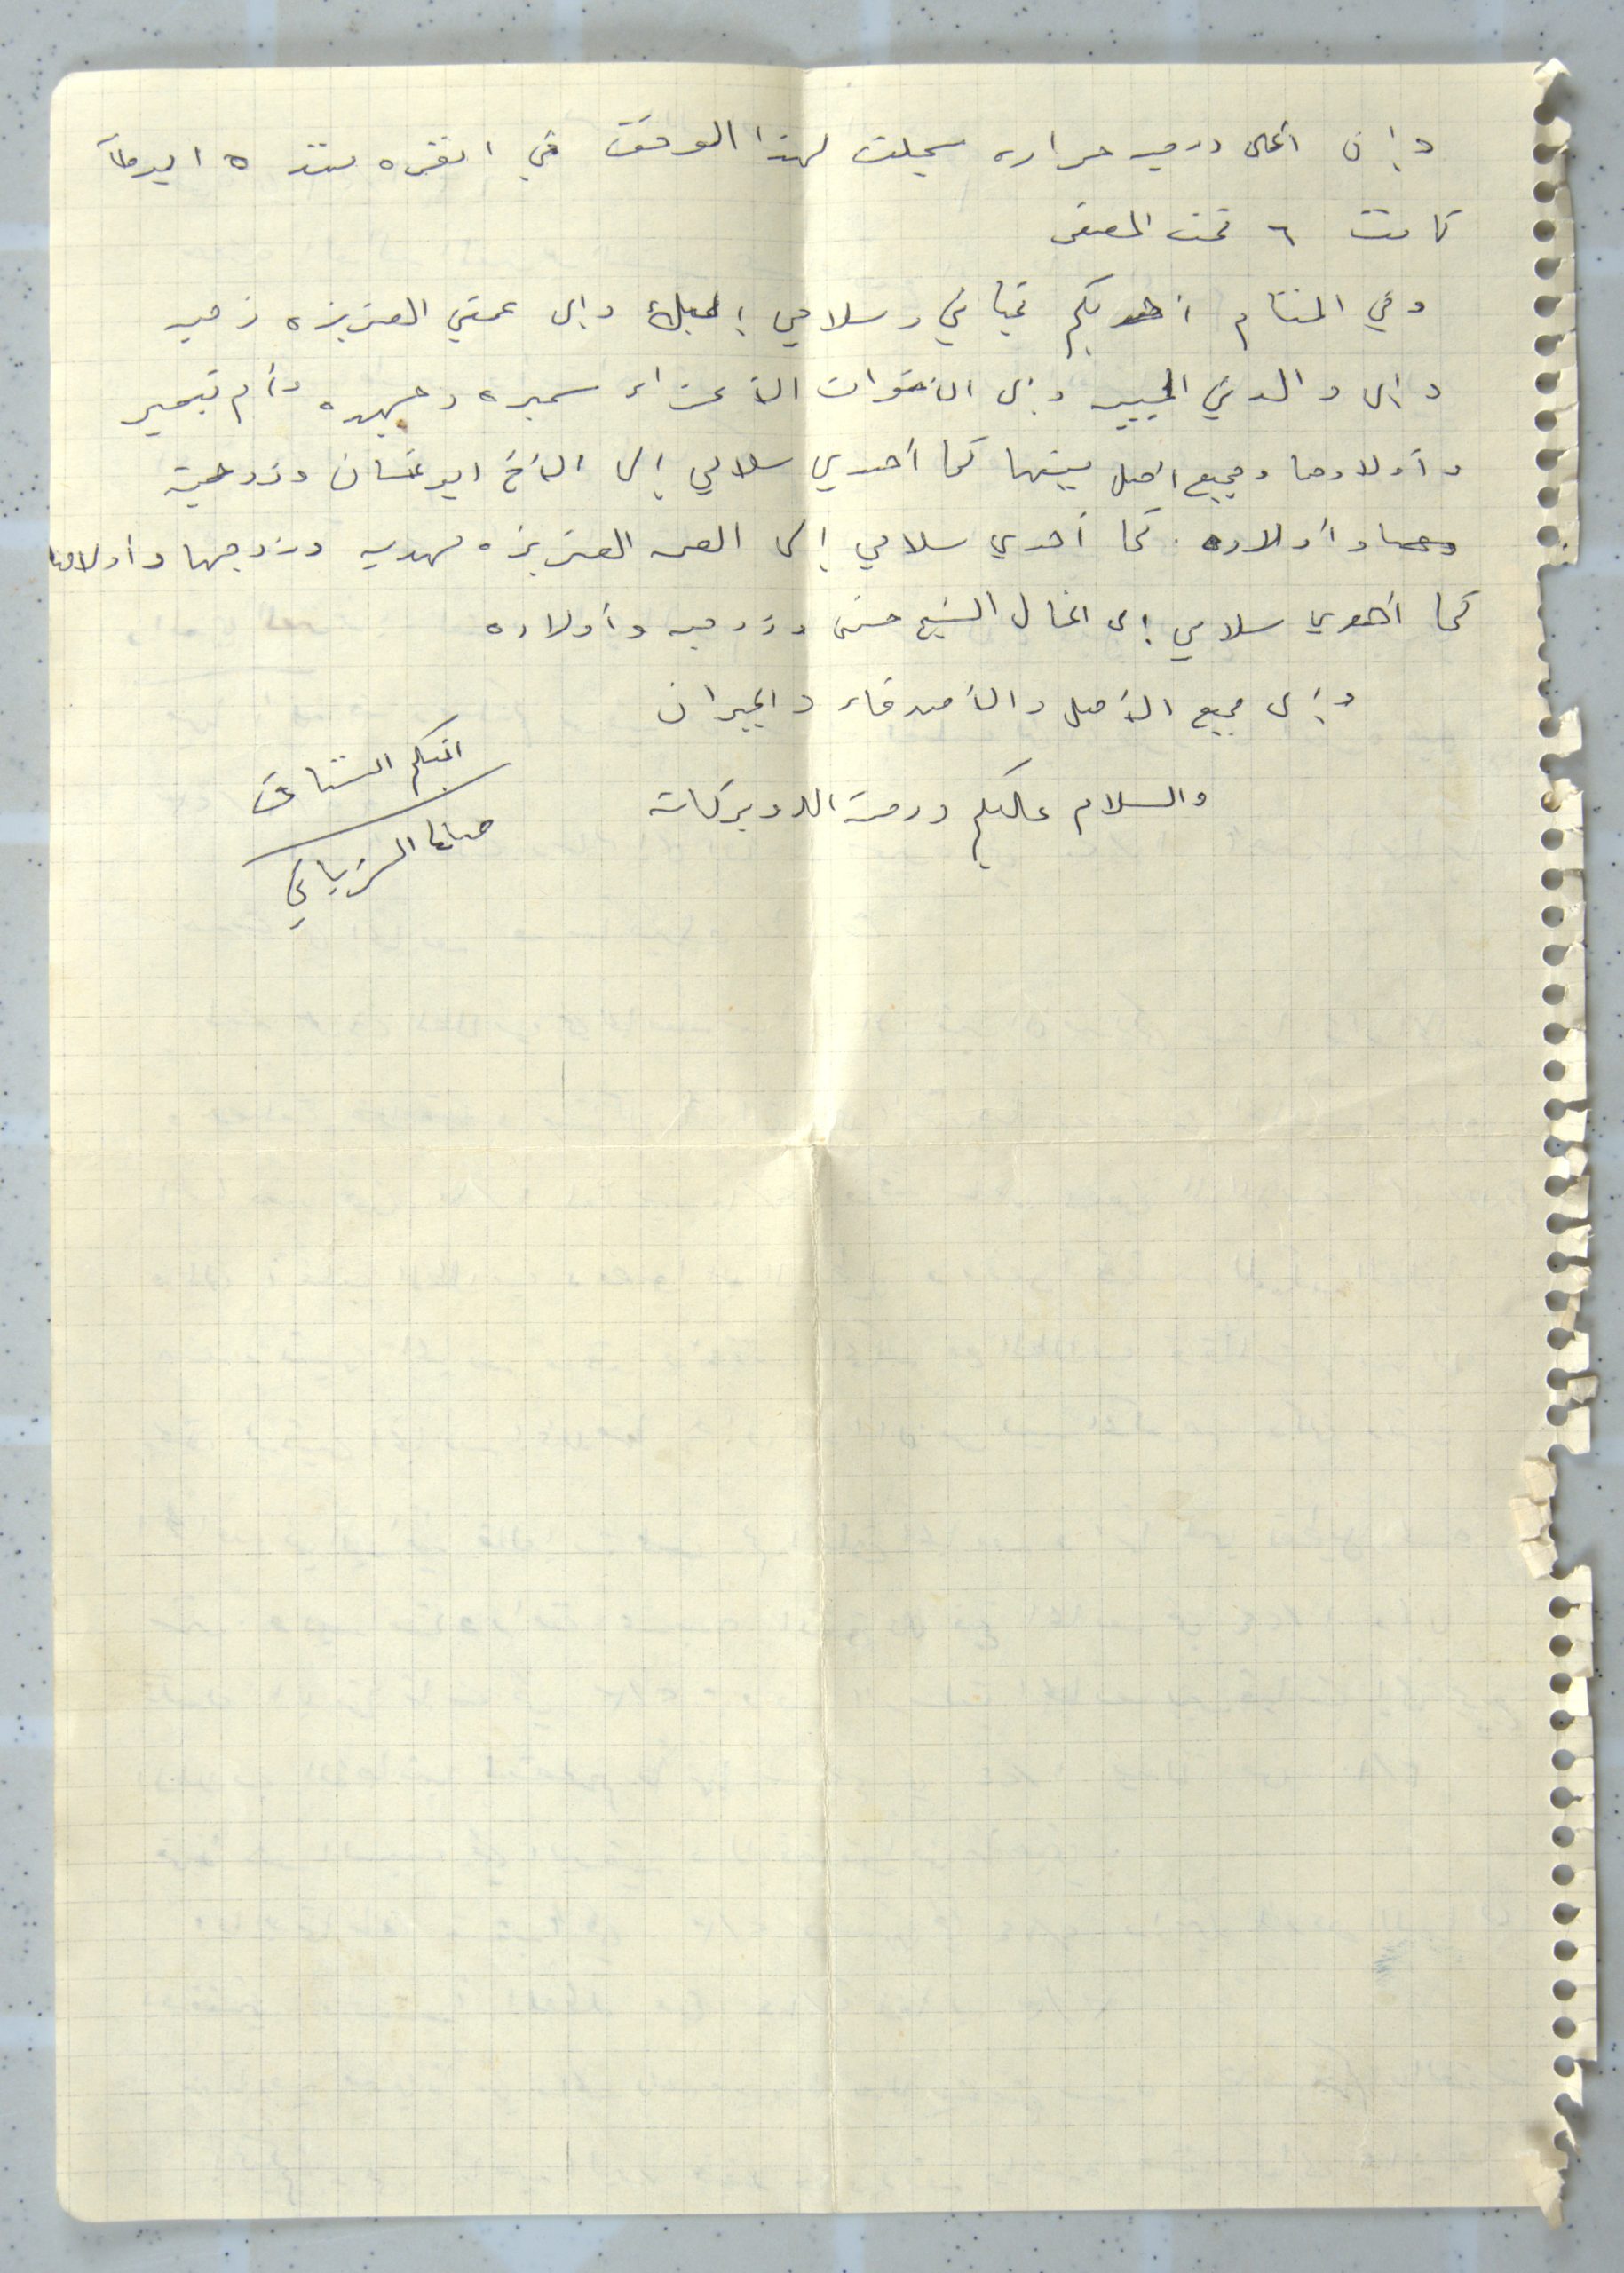 وإن أعلى درجه حراره سجلت لهذا الوقت في انقره منذ ١٥ يوماً
كانت ٦ تحت الصفر
وفي الختام أهديكم تحياتي وسلامي إليك وإلى عمتي العزيزه
وإلى والدتي الحبيبه وإلى الأخوات الأعزاء سميره وجهيده وأم تيسير
وأولادها وجميع أهل بيتها كما أهدي سلامي إلى الأخ ابو غسان وزوجته
وأولاده . كما أهدي سلامي إلى العمه العزيزه مهديه وزوجها وأولادها
كما أهدي سلامي إلى الخال الشيخ حسن وزوجته وأولاده
وإلى جميع الأهل والأصدقاء والجيران
والسلام عليكم ورحمة الله وبركاته
ابنكم المشتاق